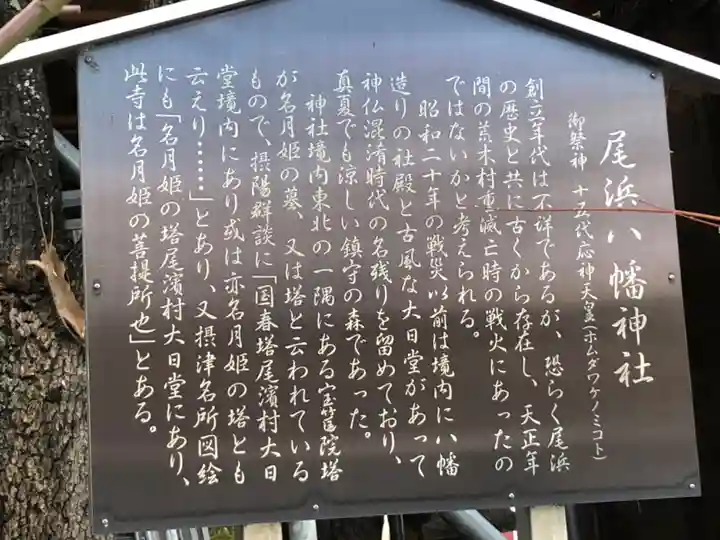 尾浜八幡神社
御祭神 十五代応神天皇(ホムダワケノミコト)
創立年代は不詳であるが、恐らく尾浜
の歴史と共に古くから存在し、天正年
間の荒木村重滅亡時の戦火にあったの
ではないかと考えられる。
昭和二十年の戦災以前は境内に八幡
造りの社殿と古風な大日堂があって
神仏混淆時代の名残りを留めており、
真夏でも涼しい鎮守の森であった。
神社境内東北の一隅にある宝篋院塔
が名月姫の墓、又は塔と云われている
もので、摂陽群談に「国春塔尾濱村大日
堂境内にあり或は亦名月姫の塔とも
云えり……」とあり、又摂津名所図絵
にも「名月姫の塔尾濱村大日堂にあり、
此寺は名月姫の菩提所也」とある。